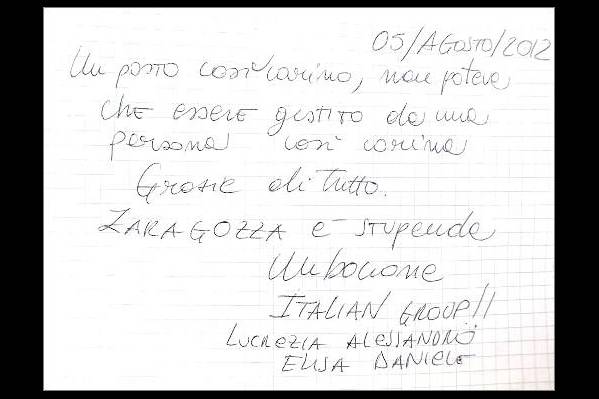 05/AGOSTO/2012
Un posto così carino, non poteva
che essere gestito da una
persona così carina
Grazie di tutto.
ZARAGOZZA e' stupenda
Un bacione
ITALIAN GROUP!!
LUCREZIA ALESSANDRO
ELISA DANIELE